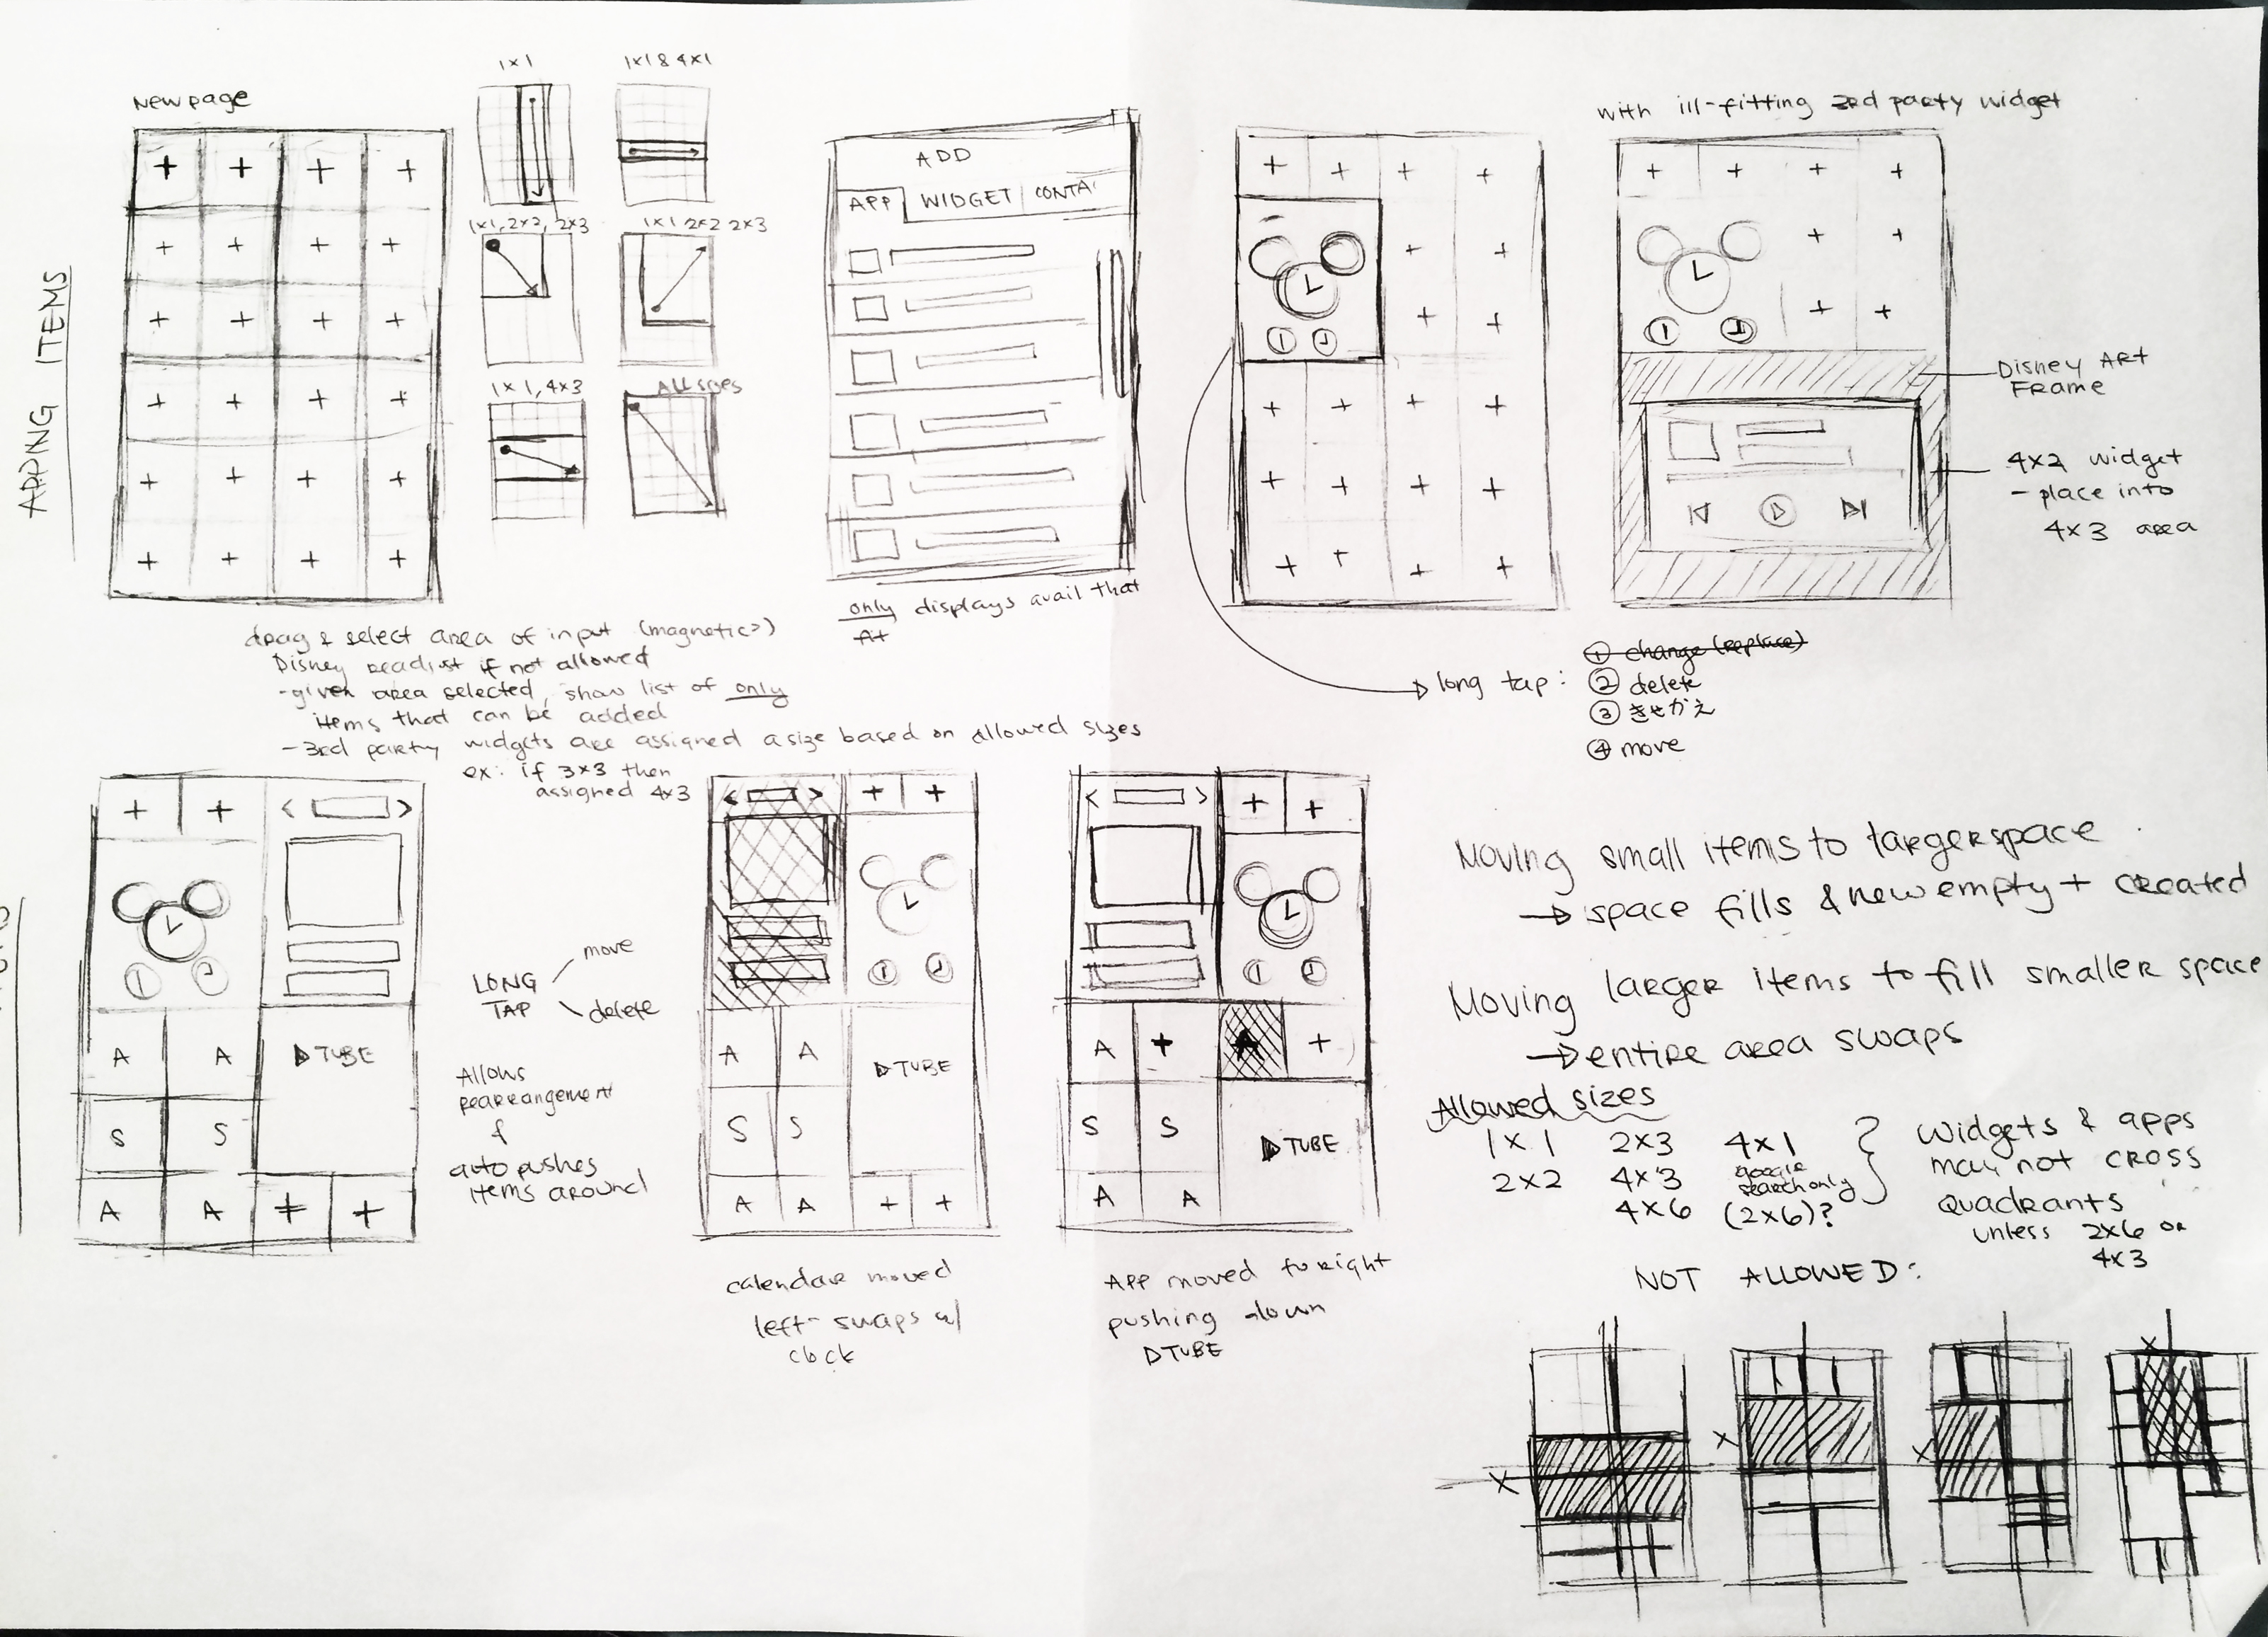 ADDING ITEMS
New page
1x1
1x1 & 4x1
1x1, 2x2, 2x3
1x1 2x2 2x3
1x1, 4x3
ALL SIZES
ADD
APP WIDGET CONTA
only displays avail that
fit
drag & select area of input (magnetic?)
Disney readjust if not allowed
- given area selected, show list of only
items that can be added
- 3rd party widgets are assigned a size based on allowed sizes
ex: if 3x3 then
assigned 4x3
with ill-fitting 3rd party widget
Disney ART
Frame
4x2 widget
- place into
4x3 area
long tap:
① change (replace)
② delete
③ きせかえ
④ move
< >
A A ▷TUBE
S S
A A
LONG
TAP
move
delete
Allows
rearrangement
&
auto pushes
items around
< >
A A ▷TUBE
S S
A A
calendar moved
left - swaps w/
clock
< >
A A
S S ▷TUBE
A A
App moved to right
pushing down
▷TUBE
Moving small items to larger space
→ space fills & new empty + created
Moving larger items to fill smaller space
→ entire area swaps
Allowed sizes
1x1 2x3 4x1
2x2 4x3 google search only
4x6 (2x6)?
Widgets & apps
may not cross
quadrants
unless 2x6 or
4x3
NOT ALLOWED:
X
X
X
X